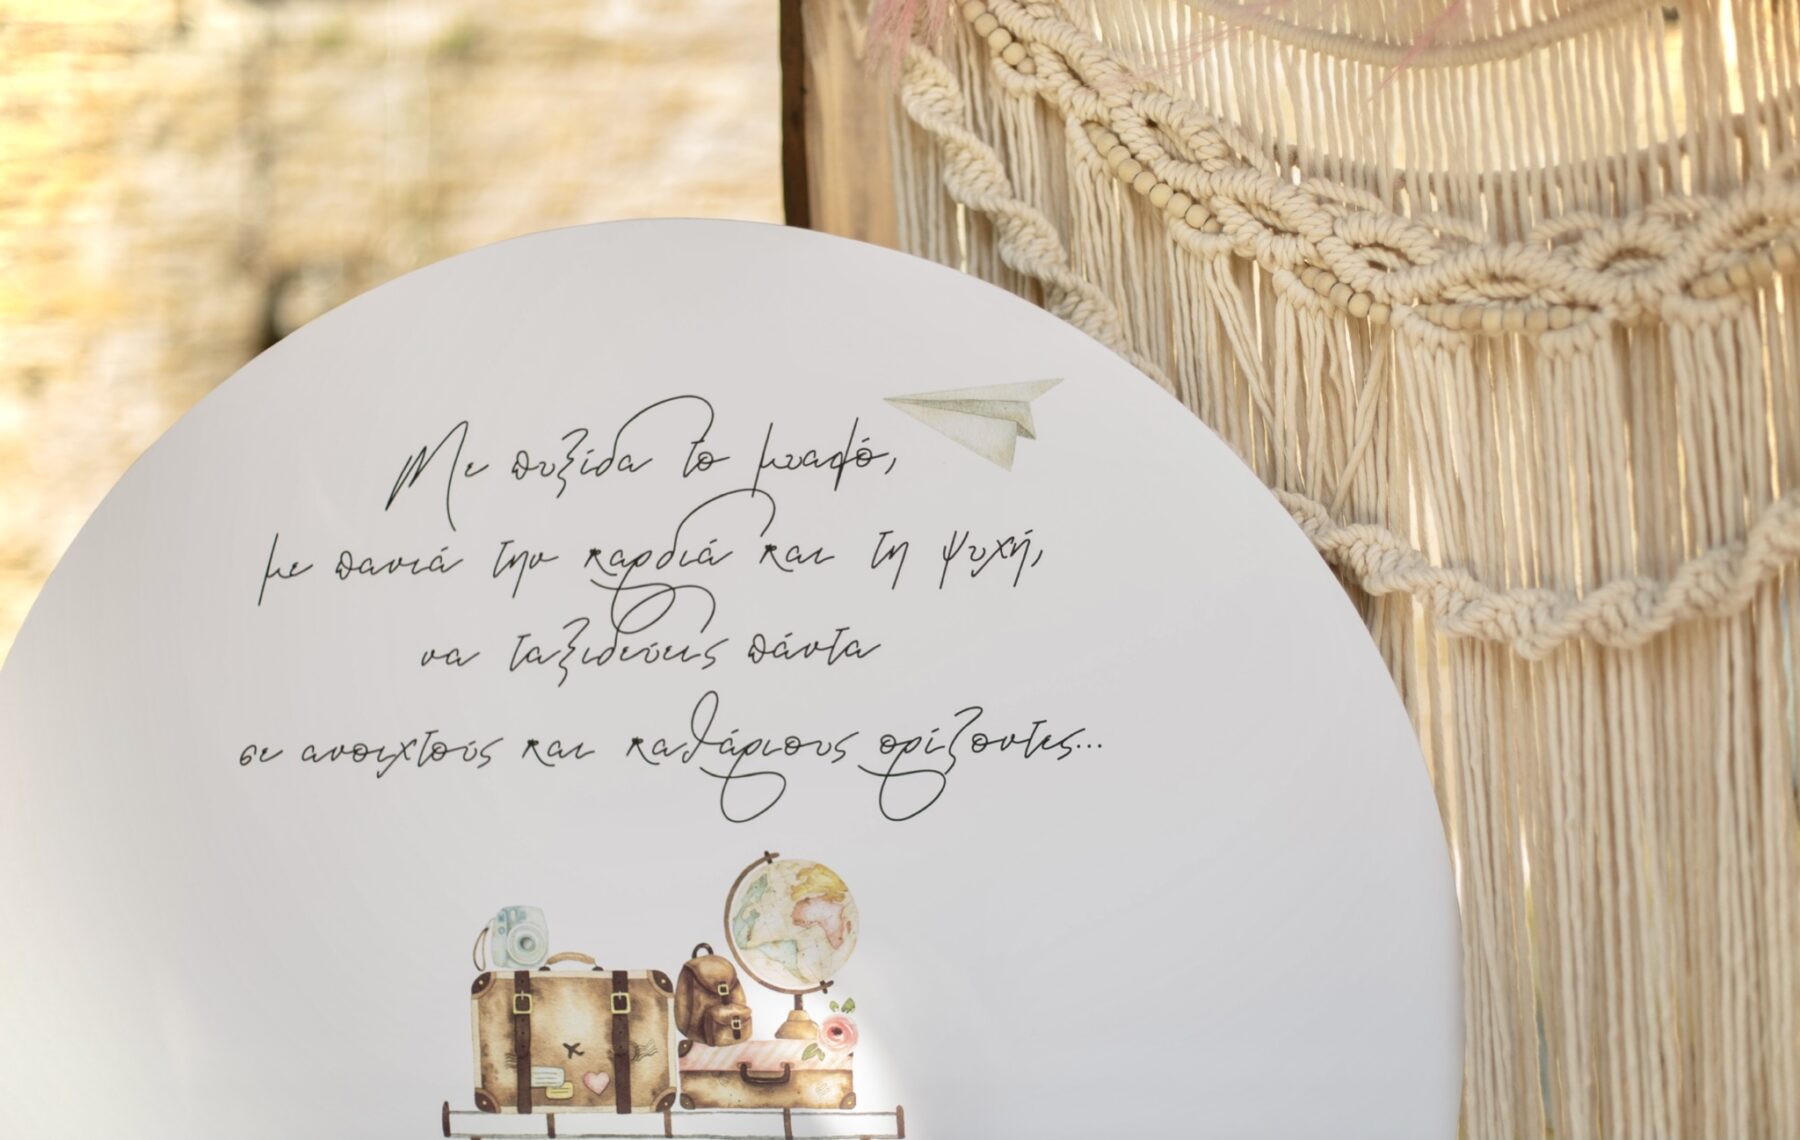 Με πυξίδα το μυαλό,
με πανιά την καρδιά και τη ψυχή,
να ταξιδεύεις πάντα
σε ανοιχτούς και καθάριους ορίζοντες...